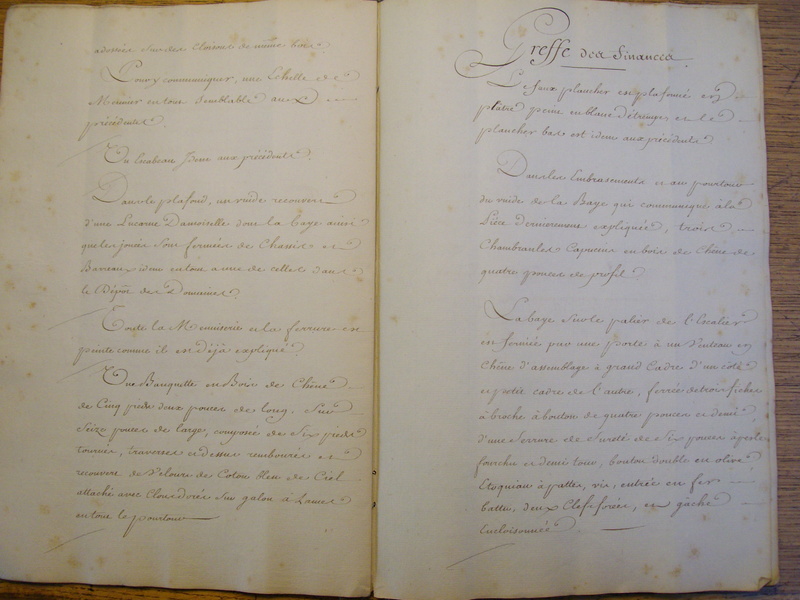 adossés sur des cloisons de même bois.
Pour y communiquer, une Echelle de
Meunier en tout semblable aux
précédentes.
Un Escabeau Idem aux précédents.
Dans le plafond, un vuide recouvert
d'une Lucarne Damoiselle dont la baye ainsi
que les jouées sont fermées de Chassis et
Barreaux idem en tout à une de celles dans
le Dépôt des Domaines.
Toute la Menuiserie et la ferrure est
peinte comme il est déjà expliqué.
Une Banquette en Bois de Chêne
de Cinq pieds deux pouces de long, sur
Seize pouces de large, composée de Six pieds
tournés, traverses et dessus rembourrés et
recouvert de Velours de Coton bleu de Ciel
attaché avec Clous dorés sur galon à Lames
en tout le pourtour
Greffe des finances.
Le faux plancher est plafonné en
plâtre peint en blanc d'étrempe et le
plancher bas est idem aux précédents.
Dans les Embrasements et au pourtour
du vuide de la Baye qui communique à la
Pièce dernierement expliquée, trois
Chambranles Capucins en bois de Chêne de
quatre pouces de profil.
La baye sur le palier de l'Escalier
est fermée par une porte à un Venteau en
Chêne d'assemblage à grand Cadre d'un côté
et petit cadre de l'autre, ferrée de trois fiches
à broche à bouton de quatre pouces et demi
d'une Serrure de Sureté de Six pouces à pesle
fourchu et demi tour, bouton double en olive,
Etoquiau à pattes, vis, entrée en fer
battu, deux Clefs forées, et gâche
Encloisonnée.